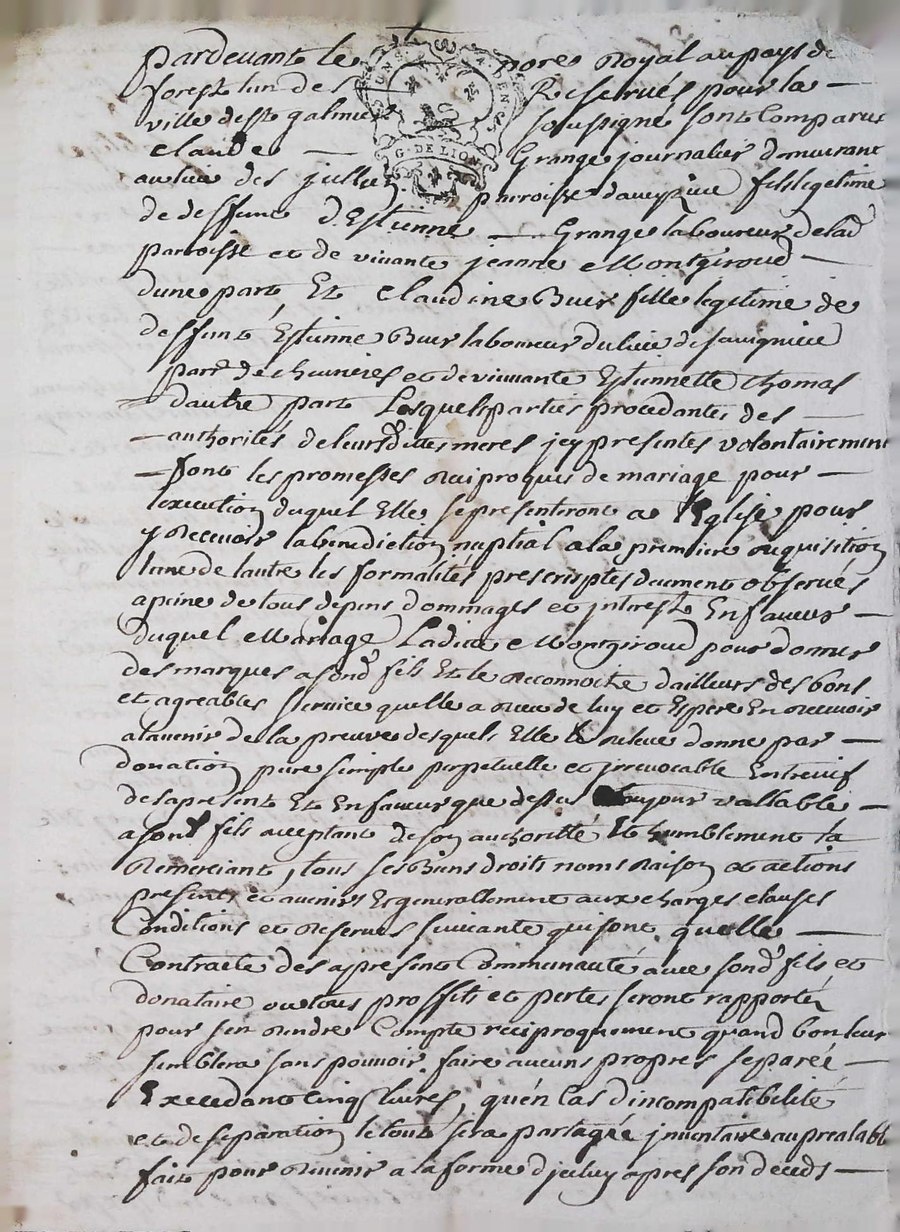 pardevant le nore Royal au pays de
forest lun des Reservés pour la
ville de st galmier soussigné sont Comparus
UNS. 4. DEN
G. DE LION
claude Grange journalier demeurant
au lieu des jullien parroisse daveyzieu fils legitime
de deffunt Estienne Grange laboureur de lad
parroisse et de vivante jeanne Montgiroud
dune part, Et Claudine Buer fille legitime de
deffunt Estienne Buer laboureur du lieu de
parse de chevrieres et de vivante Estiennette thomas
dautre part Lesquels parties procedantes des
authorités de leursdittes meres jcy presentes volontairement
font les promesses reciproques de mariage pour
lexecution duquel Elle se presenteront a lEglise pour
y Recevoir la benediction nuptial a la premiere requisition
lune de lautre les formalités prescriptes duement observés
a peine de tous depens dommages et jnterest En faveur
duquel Mariage Ladite Montgiroud pour donner
des marques a sond fils Et le reconnoitre dailleurs des bons
et agreables service quelle a receu de luy et Espere En recevoir
a lavenir de la preuve desquels Elle le releve donne par
donation pure simple perpetuelle et jrrevocable Entrevif
des apresent Et En faveur que dessus toujour vallable
a sond fils acceptant de son authorité Et humblement la
Remerciant, tous ses Biens droits noms Raison et actions
presents et avenirs Et generallement aux charges clauses
Conditions et Reserves suivante qui sont quelle
Contracte des apresent Communauté avec sond fils et
donataire ou tous proffits et pertes seront rapportés
pour sen rendre Compte reciproquement quand bon leur
semblera sans pouvoir faire aucuns propres separé
Excedant cinq livres, quén cas djncompatibilité
et de separation le tout sera partagée jnventaire au prealable
fait pour revenir a la forme djceluy apres son deceds